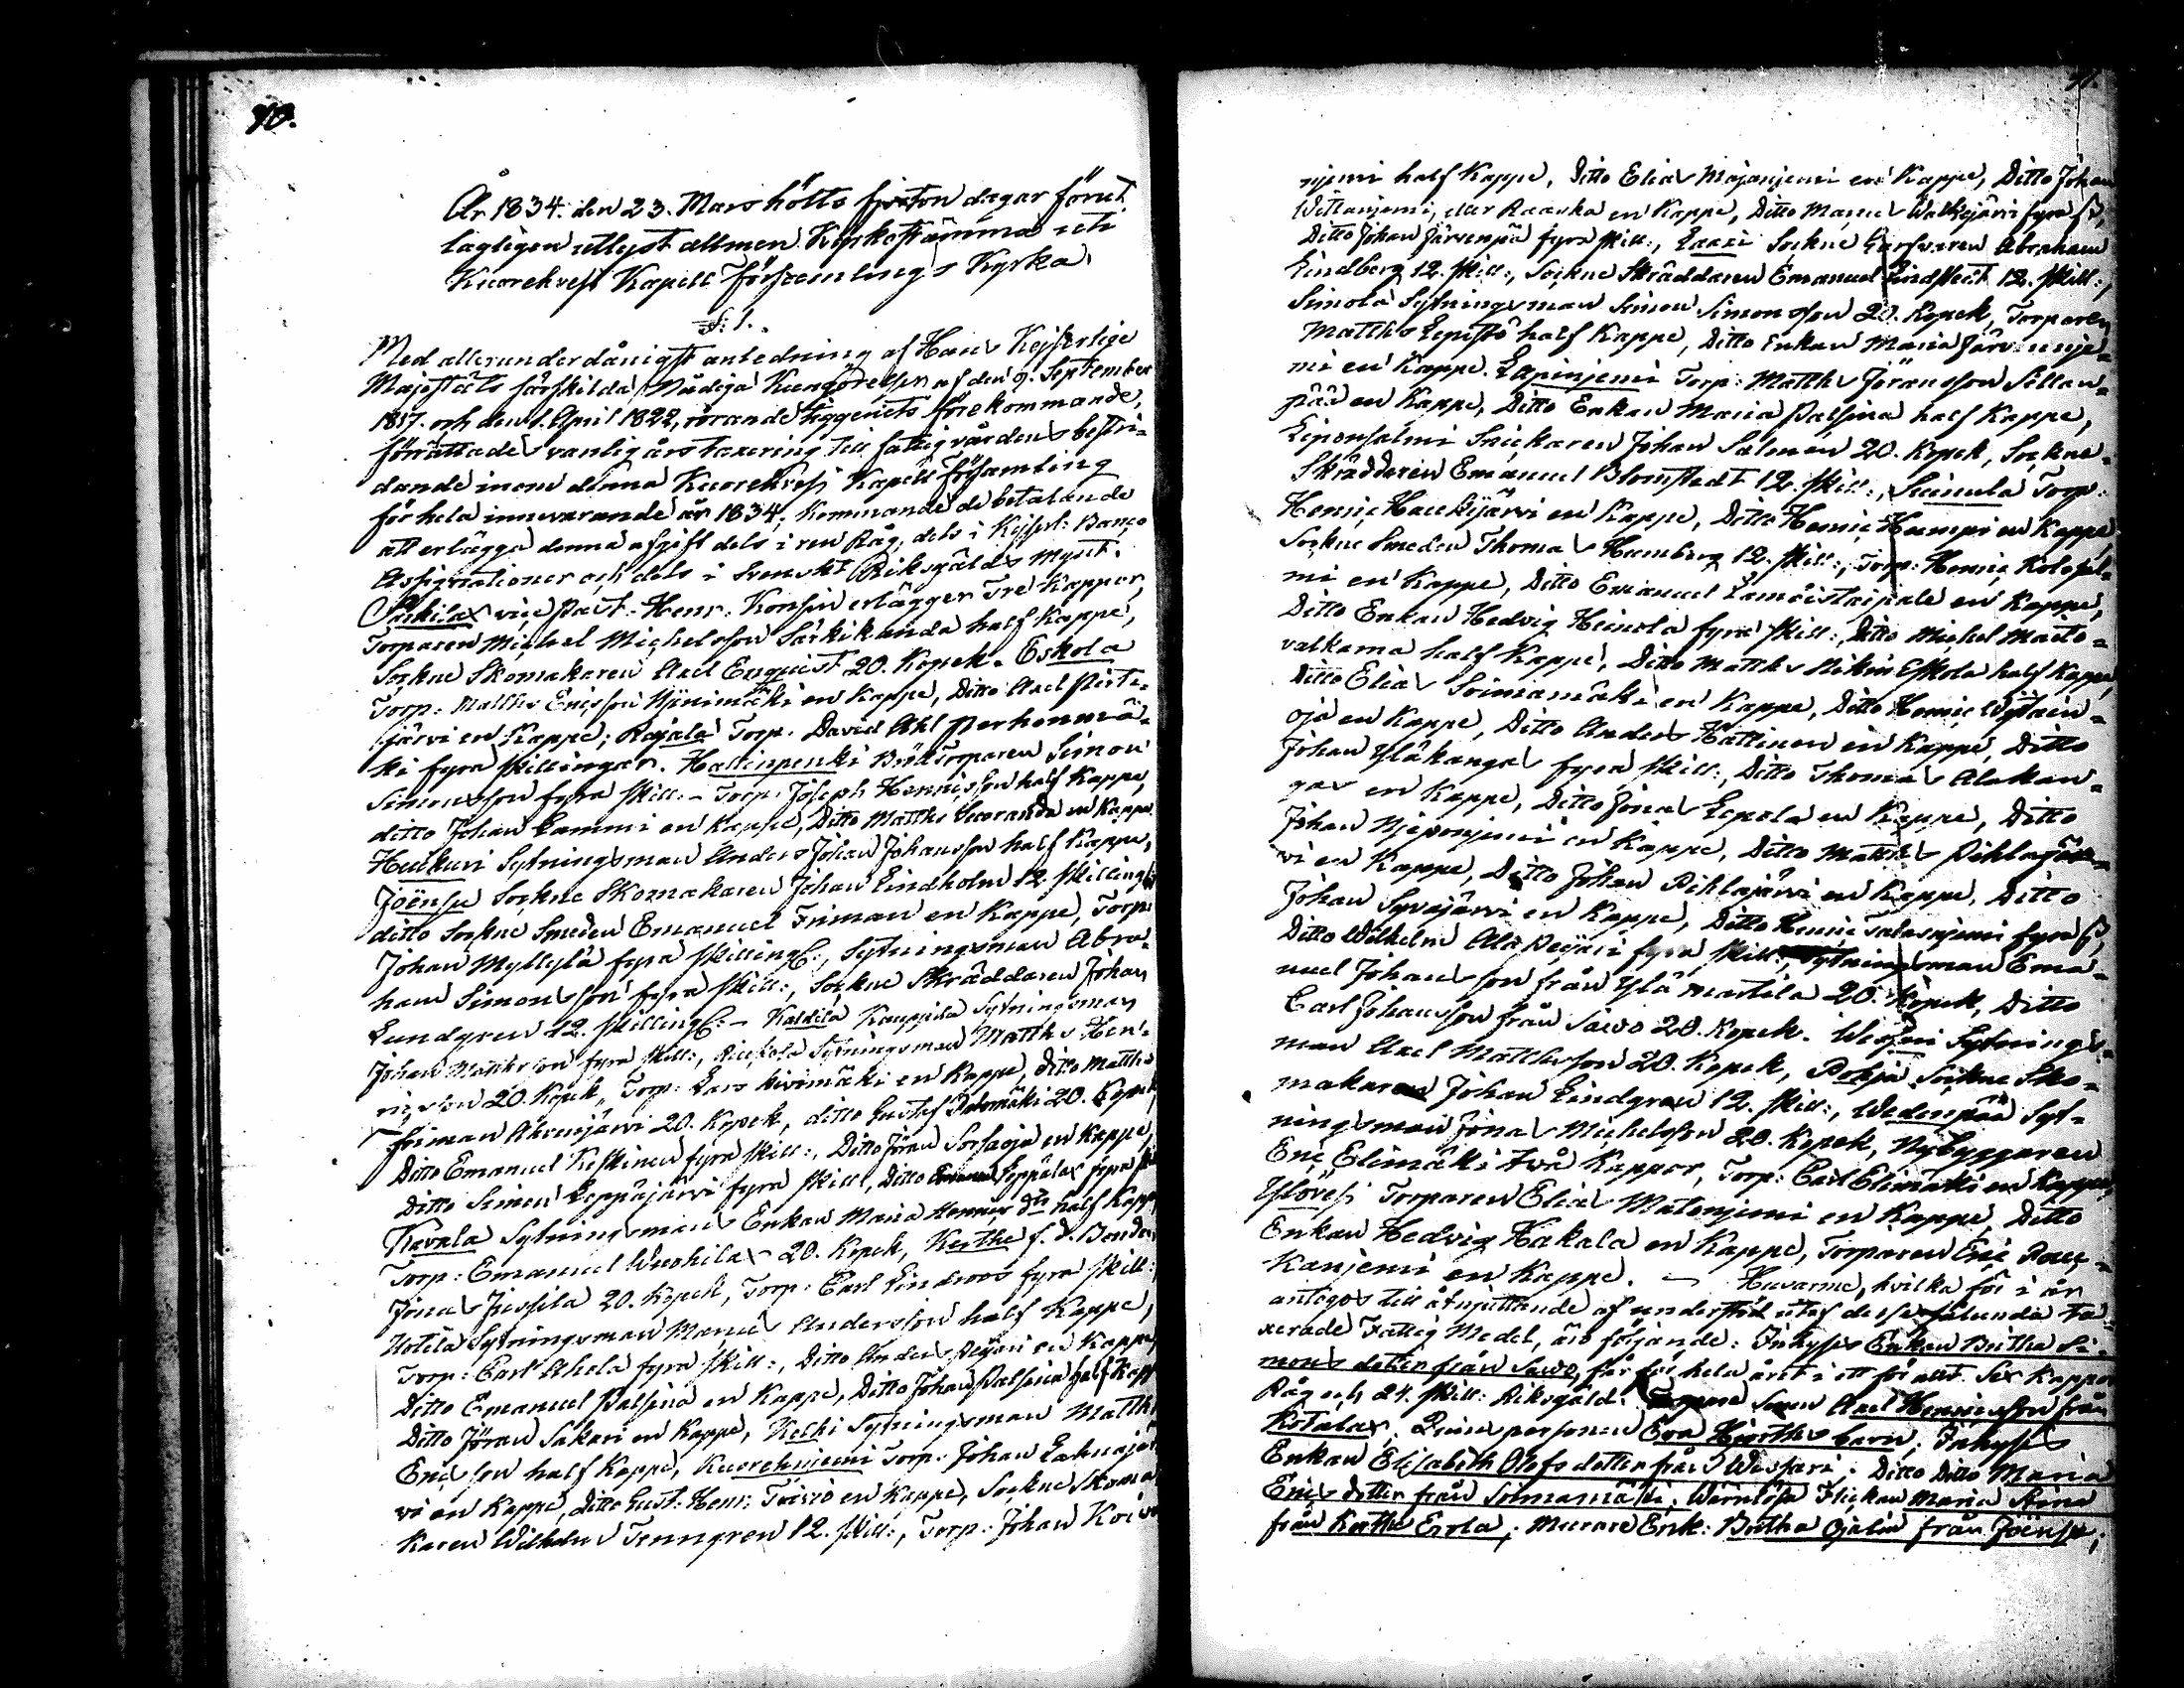 70.
År 1834. den 23. Mars hölts fjorton dagar förut
lagligen utlyst allmen Kyrkostämma uti
Kuorehvesi Kapell Församlings Kyrka.
§. 1.
Med allerunderdånigst anledning af Hans Kejserlige
Majestäts särskilda Nådiga Kungörelser af den 9. September
1817. och den 1. April 1822, rörande tiggeriets förekommande,
förrättades vanlig års taxering till fattigvårdens bestri-
dande inom denna Kuorehvesi Kapell Församling
för hela innevarande år 1834, kommande de betalande
att erlägga denna afgift dels i ren Råg, dels i Kejserl: Banco
Assignationer och dels i Svenskt Riksgälds Mynt.
Pärkilax vice Past: Henr: Konsin erlägger Tre Kappor,
Torparen Michel Michelsson Särkikanda half Kappe,
Sockne Skomakaren Axel Enqvist 20. Kopek. Eskola
Torp: Matths Ericsson Nynimäki en Kappe, Ditto Axel Pirti-
järvi en Kappe; Rajala Torp. David Ahl Perhonmä-
ki fyra skillingar. Hallinpenki Bāktorparen Simon
Simonsson fyra skill: - Torp: Joseph Henricsson half Kappe,
ditto Johan Lammi en Kappe, Ditto Matths Uuoranda en Kappe.
Heukuri Sytningsman Anders Johan Johansson half Kappe,
Joënsu Sockne Skomakaren Johan Lindholm 12. skillingar
ditto Sockne Smeden Emanuel Friman en Kappe, Torp:
Johan Myllylä fyra skilling:, Sytningsman Abra-
ham Simonsson fyra skill:, Sockne Skräddaren Johan
Lundgren 12. skilling: - Kaldila Kaupila Sytningsman
Johan Mattsson fyra skill:, Sytningsman Matths Hen-
ricsson 20. Kopek, Torp: Lars Hirvimäki en Kappe, ditto Matths
Friman Ahvenjärvi 20. Kopek, ditto Gustaf Palomäki 20. Kopek,
Ditto Emanuel Keskinen fyra skill:, Ditto Jöran Sorsaoja en Kappe,
Ditto Simon Leppäjärvi fyra skill, Ditto Seppälax fyra sk
Kavala Sytningsmans Enkan Maria Henrics dtr half Kappe
Torp: Emanuel Wuohilax 20. Kopek, Kerthe f. d. Bonden
Jöns Jussila 20. Kopek, Torp: Carl Lindroos fyra skill:
Hotila Sytningsman Andersson half Kappe,
Torp: Carl Ahola fyra skill:, Ditto Anders Peijari en Kappe,
Ditto Emanuel Palsina en Kappe, Ditto Johan Palsina half Kapp
Ditto Jöran Sakari en Kappe, Kolhi Sytningsman Matths
Ericsson half Kappe, Kuorehniemi Torp: Johan Lahnajär
vi en Kappe, Ditto Gust: Henr: Toivio en Kappe, Sockne Skoma
karen Wilhelm Tenngren 12. skill:, Torp: Johan Koivu
71.
njemi half Kappe, Ditto Elias Majanjemi en Kappe, Ditto Johan
Wittanjemi, eller Raaska en Kappe, Ditto Walkejärvi fyra s,
Ditto Johan Järvenpä fyra skill:, Laari Sockne Garfvaren Abraham
Lindberg 12. skill:, Sockne Skräddaren Emanuel Lindstedt 12. skill:,
Simola Sytningsman Simon Simonsson 20. Kopek, Torparen
Matths Lepistö half Kappe, Ditto Enkan Maria Järvenje-
mi en Kappe. Lapinjemi Torp: Matths Jöransson Sillan-
pää en Kappe, Ditto Enkan Maria Palsina half Kappe,
Leponsalmi Snickaren Johan Salmén 20. Kopek, Sockne-
Skräddaren Emanuel Blomstedt 12. skill:, Suinula Torp:
Henric Haukijärvi en Kappe, Ditto Henric Humpi en Kappe,
Sockne Smeden Thomas Humberg 12. skill:, Torp: Henric Kolosal-
mi en Kappe, Ditto Emanuel Lamoistaipale en Kappe,
Ditto Enkan Hedvig Heinola fyra skill:, Ditto Michel Maito-
valkama half Kappe, Ditto Matths Eskola half Kappe,
Ditto Elias Soimamäki en Kappe, Ditto Henric
oja en Kappe, Ditto Anders Hallinen en Kappe, Ditto
Johan Yläkangas fyra skill:, Ditto Thomas Alakan-
gas en Kappe, Ditto Jonas Lepola en Kappe, Ditto
Johan en Kappe, Ditto Matths Pihlajär-
vi en Kappe, Ditto Johan Pihlajärvi en Kappe, Ditto
Johan Syväjärvi en Kappe, Ditto Henric Salasnjemi fyra s,
Ditto Wilhelm Ala Peijari fyra skill:, Sytningsman Ema-
nuel Johansson från Ylä Mastila 20. Kopek, Ditto
Carl Johansson från Sawo 20. Kopek. Wesari Sytnings-
man Axel Matthsson 20. Kopek, Pohja Sockne Sko-
makaren Johan Lindgren 12. skill:, Wedenpää Syt-
ningsman Jonas Michelsson 20. Kopek, Nybyggaren
Eric Elimäki två Kappor, Torp: Carl Elimäki en Kappe,
Ylövesi Torparen Elias Matonjemi en Kappe, Ditto
Enkan Hedvig Hakala en Kappe, Torparen Eric Rau-
hanjemi en Kappe. - Huvarme, hvilka för i år
antogos till åtnjuttande af understöd utaf desse sålunda ta-
xerade Fattig Medel, äro följande: Inhyses Enkan Britha Si-
mons dotter från Sawo, får för hela året i ett för allt Sex Kappor
Råg och 24. skill: Riksgäld: Axel Henricsson från
Kotalax, Qvinspersonen Eva Hjorths barn; Inhyses
Enkan Elisabeth Olofs dotter från Wessari; Ditto Ditto Maria
Erics dotter från Soimamäki; Wärnlösa Flickan Maria Stina
från Kerthe Erola; Murare Enk: Britha Ojalin från Joënsu;